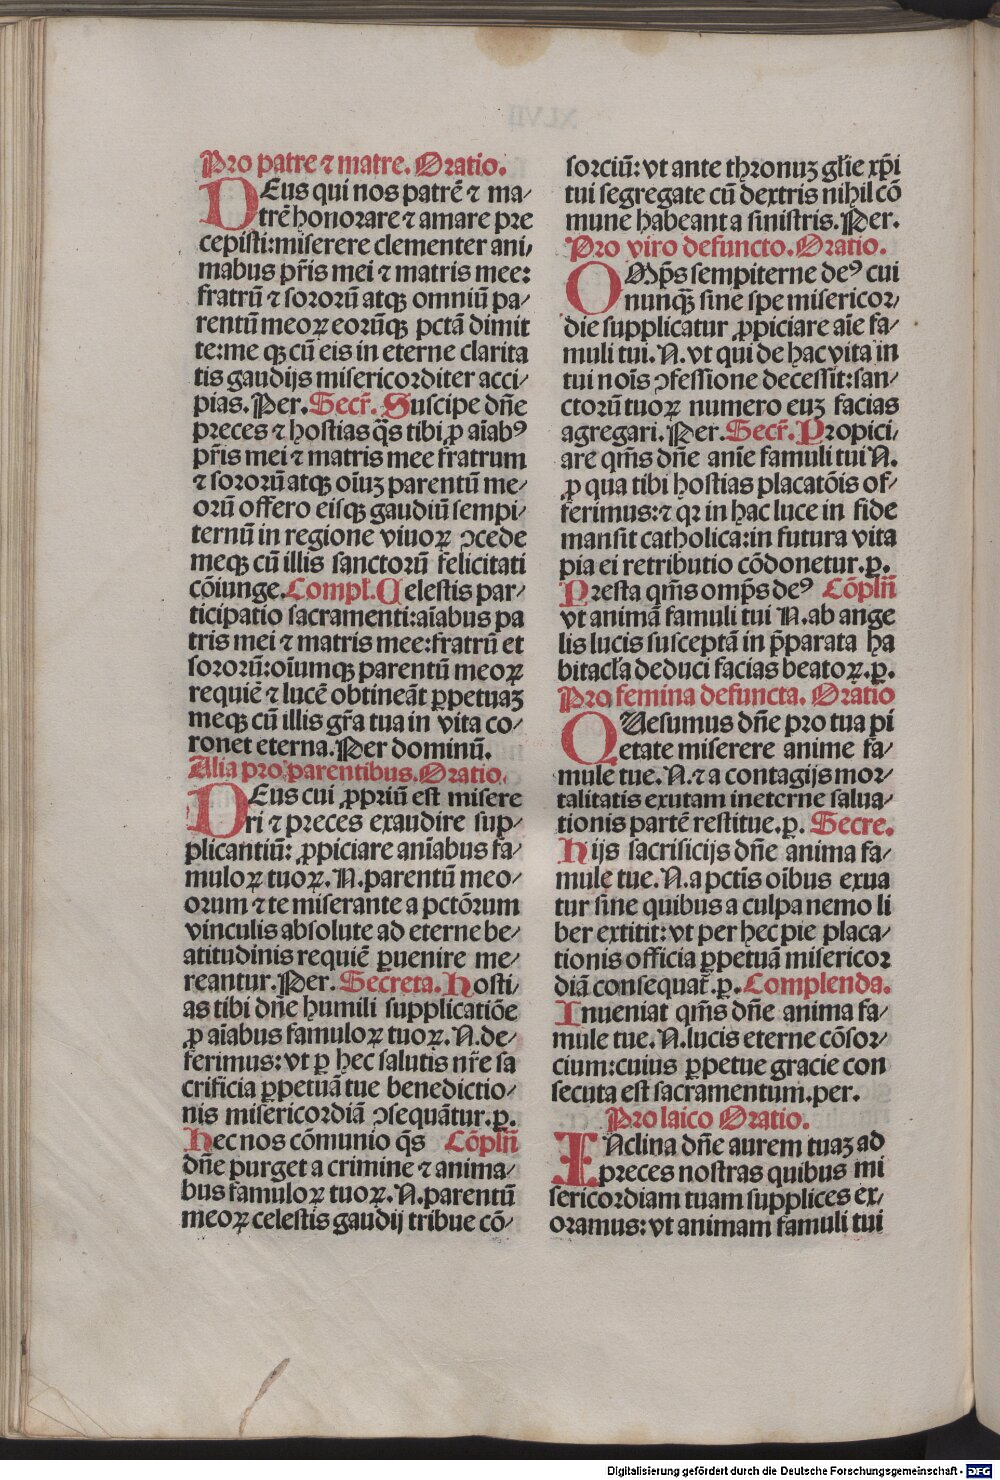 Pro patre ⁊ matre. Oratio.
DEus qui nos patrē ⁊ ma⸗
trē honorare ⁊ amare pre
cepisti: miserere clementer ani⸗
mabus pr̄is mei ⁊ matris mee:
fratrū ⁊ sororū atqꝫ omniū pa⸗
rentū meoꝝ eorūqꝫ pctā dimit
te: me qꝫ cū eis in eterne clarita
tis gaudijs misericorditer acci⸗
pias. Per. Secr̄. Suscipe dn̄e
preces ⁊ hostias q̄s tibi ꝓ aīabꝰ
pr̄is mei ⁊ matris mee fratrum
⁊ sororū atqꝫ oīuꝫ parentū me⸗
orū offero eisqꝫ gaudiū sempi⸗
ternū in regione viuoꝝ ꝯcede
meqꝫ cū illis sanctorū felicitati
cōiunge. Compl̄. Celestis par⸗
ticipatio sacramenti: aīabus pa
tris mei ⁊ matris mee: fratrū et
sororū: oīumqꝫ parentū meoꝝ
requiē ⁊ lucē obtineāt ꝑpetuaꝫ
meqꝫ cū illis gr̄a tua in vita co⸗
ronet eterna. Per dominū.
Alia pro parentibus. Oratio.
DEus cui ꝓpriū est misere
ri ⁊ preces exaudire sup⸗
plicantiū: ꝓpiciare anīabus fa⸗
muloꝝ tuoꝝ. N. parentū meo⸗
orum ⁊ te miserante a pctōrum
vinculis absolute ad eterne be⸗
atitudinis requiē ꝑuenire me⸗
reantur. Per. Secreta. Hosti⸗
as tibi dn̄e humili supplicatiōe
ꝓ aīabus famuloꝝ tuoꝝ. N. de⸗
ferimus: vt ꝑ hec salutis nr̄e sa
crificia ꝑpetuā tue benedictio⸗
nis misericordiā ꝯsequātur. ꝑ.
Hec nos cōmunio q̄s Cōpln̄
dn̄e purget a crimine ⁊ anima⸗
bus famuloꝝ tuoꝝ. N. parentū
meoꝝ celestis gaudij tribue cō⸗
sorciū: vt ante thronuꝫ gl̄ie xp̄i
tui segregate cū dextris nihil cō
mune habeant a sinistris. Per.
Pro viro defuncto. Oratio.
OMp̄s sempiterne deꝰ cui
nunqꝫ̄ sine spe misericor⸗
die supplicatur ꝓpiciare aīe fa⸗
muli tui. N. vt qui de hac vita in
tui noīs ꝯfessione decessit: san⸗
ctorū tuoꝝ numero euꝫ facias
agregari. Per. Secr̄. Propici⸗
are qm̄s dn̄e anīe famuli tui N.
ꝓ qua tibi hostias placatōis of⸗
ferimus: ⁊ qꝛ in hac luce in fide
mansit catholica: in futura vita
pia ei retributio cōdonetur. ꝑ.
Presta qm̄s omp̄s deꝰ Cōpln̄
vt animā famuli tui N. ab ange
lis lucis susceptā in p̄parata ha
bitacl̄a deduci facias beatoꝝ. ꝑ.
Pro femina defuncta. Oratio
QUesumus dn̄e pro tua pi
etate miserere anime fa⸗
mule tue. N. ⁊ a contagijs mor⸗
talitatis exutam in eterne salua⸗
tionis partē restitue. ꝑ. Secre.
Hijs sacrificijs dn̄e anima fa⸗
mule tue. N. a pctīs oībus exua
tur sine quibus a culpa nemo li
ber extitit: vt per hec pie placa⸗
tionis officia ꝑpetuā misericor
diā consequat̄. ꝑ. Complenda.
Inueniat qm̄s dn̄e anima fa⸗
mule tue. N. lucis eterne cōsor⸗
cium: cuius ꝑpetue gracie con
secuta est sacramentum. per.
Pro laico Oratio.
INclina dn̄e aurem tuaꝫ ad
preces nostras quibus mi
sericordiam tuam supplices ex⸗
oramus: vt animam famuli tui
Digitalisierung gefördert durch die Deutsche Forschungsgemeinschaft - DFG